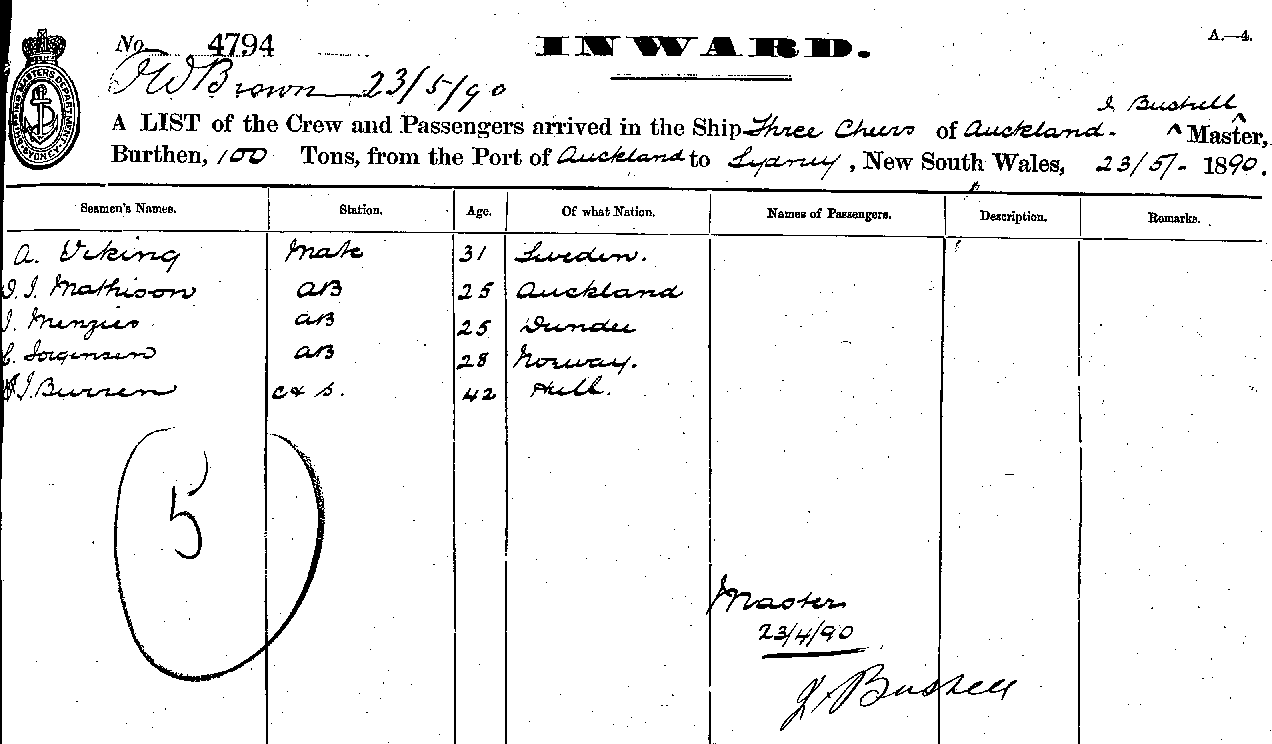 No 4794 INWARD. A.—4.
J W Brown 23/5/90
J Bushell
A LIST of the Crew and Passengers arrived in the Ship Three Cheers of Auckland. Master,
Burthen, 100 Tons, from the Port of Auckland to Sydney, New South Wales, 23/5/- 1890.
Seamen's Names. Station. Age. Of what Nation. Names of Passengers. Description. Remarks.
A. Viking Mate 31 Sweden.
J. J. Mathison AB 25 Auckland
J. Menzies AB 25 Dundee
C. Jorgensen AB 28 Norway.
J. Burren C & S. 42 Hull.
5
Master
23/4/90
J. Bushell